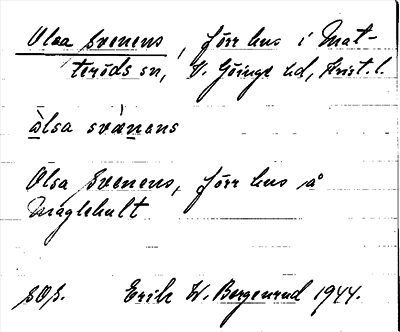 Olsa Svenens, förr hus i Mat-
teröds sn, V. Göinge hd, Krist. l.
òlsa svænens
Olsa Svenens, förr hus å
Maglehult
Erik W. Bergenrud 1944.